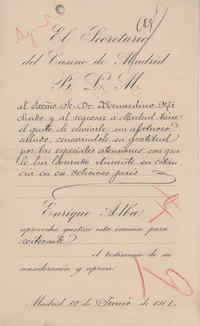 El Secretario
del Casino de Madrid
B. L. M.
al Señor D.
y al regresar a Madrid tiene
el gusto de enviarle un afectuoso
saludo, expresándole su gratitud
por las especiales atenciones con que
le ha honrado durante su estan-
cia en su delicioso país
Enrique Alba
aprovecha gustoso esta ocasión para
reiterarle
el testimonio de su
consideración y aprecio.
Madrid de Junio de 191